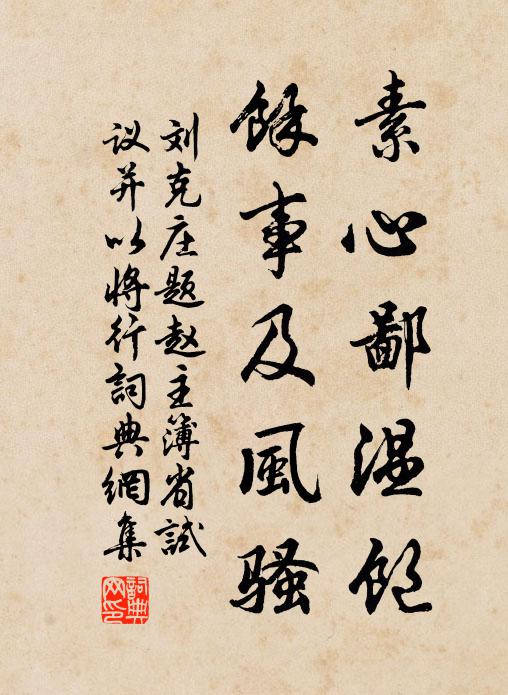 素心鄙温飽
餘事及風騷
刘克庄題赵主簿省試
议并以将行詞典網集
詞典网印